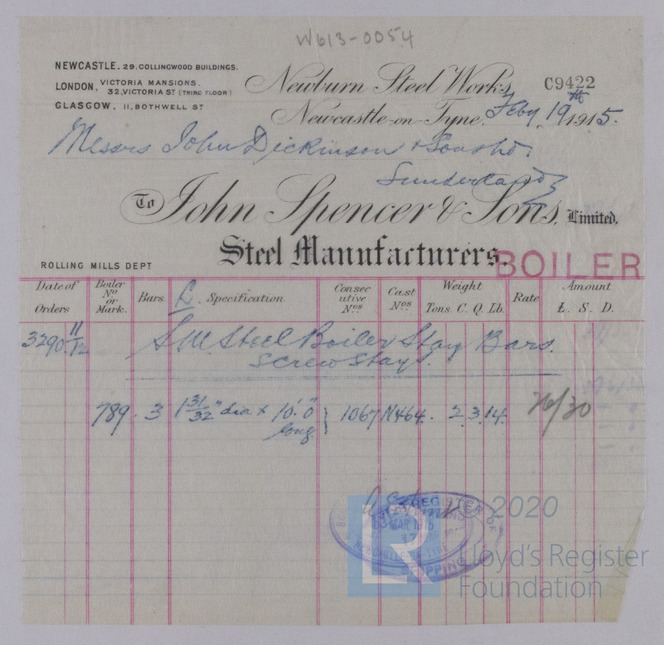 W613-0054
NEWCASTLE. 29. COLLINGWOOD BUILDINGS.
LONDON. VICTORIA MANSIONS. 32, VICTORIA ST (THIRD FLOOR)
GLASGOW. 11, BOTHWELL ST
Newburn Steel Works, C9422
Newcastle-on-Tyne, Feby 19th 1915.
Messrs John Dickinson & Sons Ltd
Sunderland
To John Spencer & Sons, Limited.
Steel Manufacturers.
BOILER
ROLLING MILLS DEPT
Date of Orders Boiler No or Mark. Bars. Specification Consecutive Nos Cast Nos Weight Tons. C. Q. Lb. Rate Amount £. S. D.
3290 11/12 S M Steel Boiler Stay Bars.
Screw Stays.
789 . 3 1 31/32" dia x 10'. 0" long. 1067 N464. 2. 3. 14.
REGISTER OF
SHIPPING
2020
Lloyd's Register
Foundation
LR